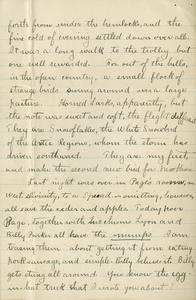 forth from under the hemlocks, and the
fine cold of evening settled down over all.
It was a long walk to the trolley but
one well rewarded. For out of the hills,
in the open country, a small flock of
strange birds swung around over a large
pasture. Horned Larks, apparently, but
the note was sweet and soft, the flight different
They are Snowflakes, the White Snowbird
of the Arctic Regions, whom the storm has
driven southward. They are my first,
and make the second new bird for
Last night was over in Page's room, in
West Divinity, to a spread, consisting, however,
all save the cider and apples. Today poor
Page, together with Lyon and
Billy Parker all have the mumps. I am
teasing them about getting it from eating
pork sausage, and simple Billy believes it. Billy
gets stung all around. You know the egg
in-but trick that I wrote you about!